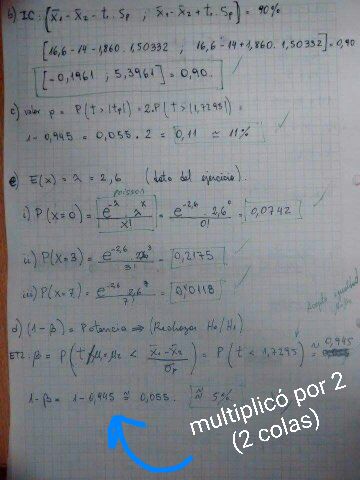 b) IC: [x̄₁ - x̄₂ - t . Sp ; x̄₁ - x̄₂ + t . Sp] = 90%
[16,6 - 14 - 1,860 . 1,50332 ; 16,6 - 14 + 1,860 . 1,50332] = 0,90
[-0,1961 ; 5,3961] = 0,90.
c) valor p = P(t > |tp|) = 2.P(t > |1,7295|) =
1 - 0,945 = 0,055 . 2 = 0,11 ≈ 11%
e) E(x) = λ = 2,6 (dato del ejercicio).
poisson
i) P(x=0) = e^-λ λ^x / x! = e^-2,6 . 2,6^0 / 0! = 0,0742
ii) P(x=3) = e^-2,6 2,6^3 / 3! = 0,2175
iii) P(x=7) = e^-2,6 2,6^7 / 7! = 0,0118
d) (1-β) = Potencia ⇒ (Rechazar H₀/H₁)
ET2: β = P(t / μ₁=μ₂ < x̄₁-x̄₂ / σp) = P(t < 1,7295) ≈ 0,945
1-β = 1 - 0,945 ≅ 0,055. ≈ 5%
multiplicó por 2
(2 colas)